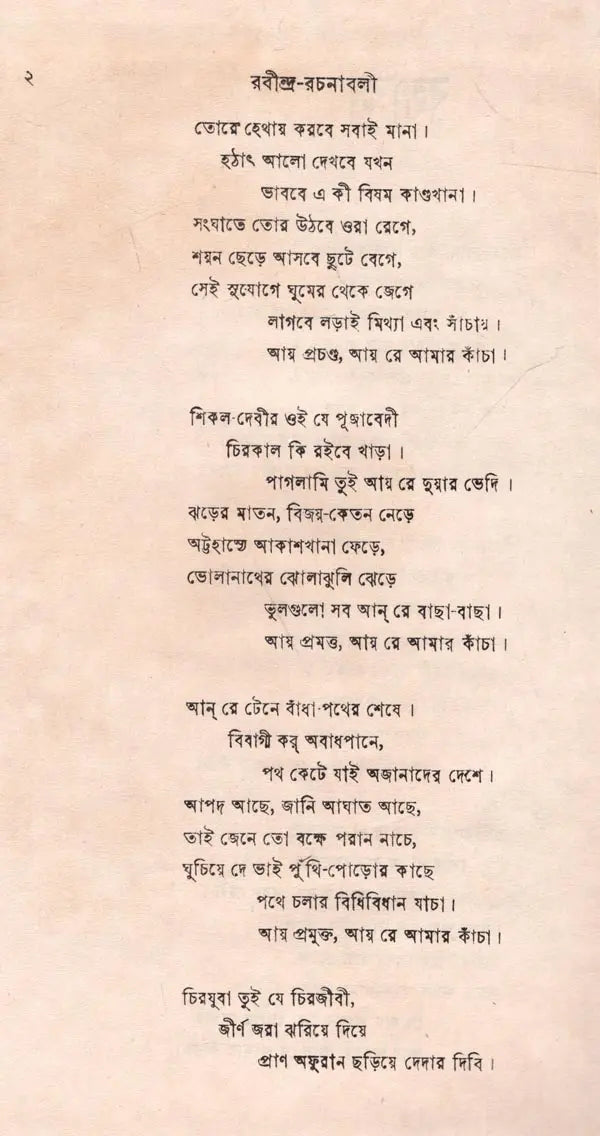 ২
রবীন্দ্র-রচনাবলী
তোরে হেথায় করবে সবাই মানা।
হঠাৎ আলো দেখবে যখন
ভাববে এ কী বিষম কাণ্ডখানা।
সংঘাতে তোর উঠবে ওরা রেগে,
শয়ন ছেড়ে আসবে ছুটে বেগে,
সেই সুযোগে ঘুমের থেকে জেগে
লাগবে লড়াই মিথ্যা এবং সাঁচায়।
আয় প্রচণ্ড, আয় রে আমার কাঁচা।
শিকল-দেবীর ওই যে পূজাবেদী
চিরকাল কি রইবে খাড়া।
পাগলামি তুই আয় রে দুয়ার ভেদি।
ঝড়ের মাতন, বিজয়-কেতন নেড়ে
অট্টহাস্যে আকাশখানা ফেড়ে,
ভোলানাথের ঝোলাঝুলি ঝেড়ে
ভুলগুলো সব আন্ রে বাছা-বাছা।
আয় প্রমত্ত, আয় রে আমার কাঁচা।
আন্ রে টেনে বাঁধা-পথের শেষে।
বিবাগী কর্ অবাধপানে,
পথ কেটে যাই অজানাদের দেশে।
আপদ আছে, জানি আঘাত আছে,
তাই জেনে তো বক্ষে পরান নাচে,
ঘুচিয়ে দে ভাই পুঁথি-পোড়োর কাছে
পথে চলার বিধিবিধান যাচা।
আয় প্রমুক্ত, আয় রে আমার কাঁচা।
চিরযুবা তুই যে চিরজীবী,
জীর্ণ জরা ঝরিয়ে দিয়ে
প্রাণ অফুরান ছড়িয়ে দেদার দিবি।